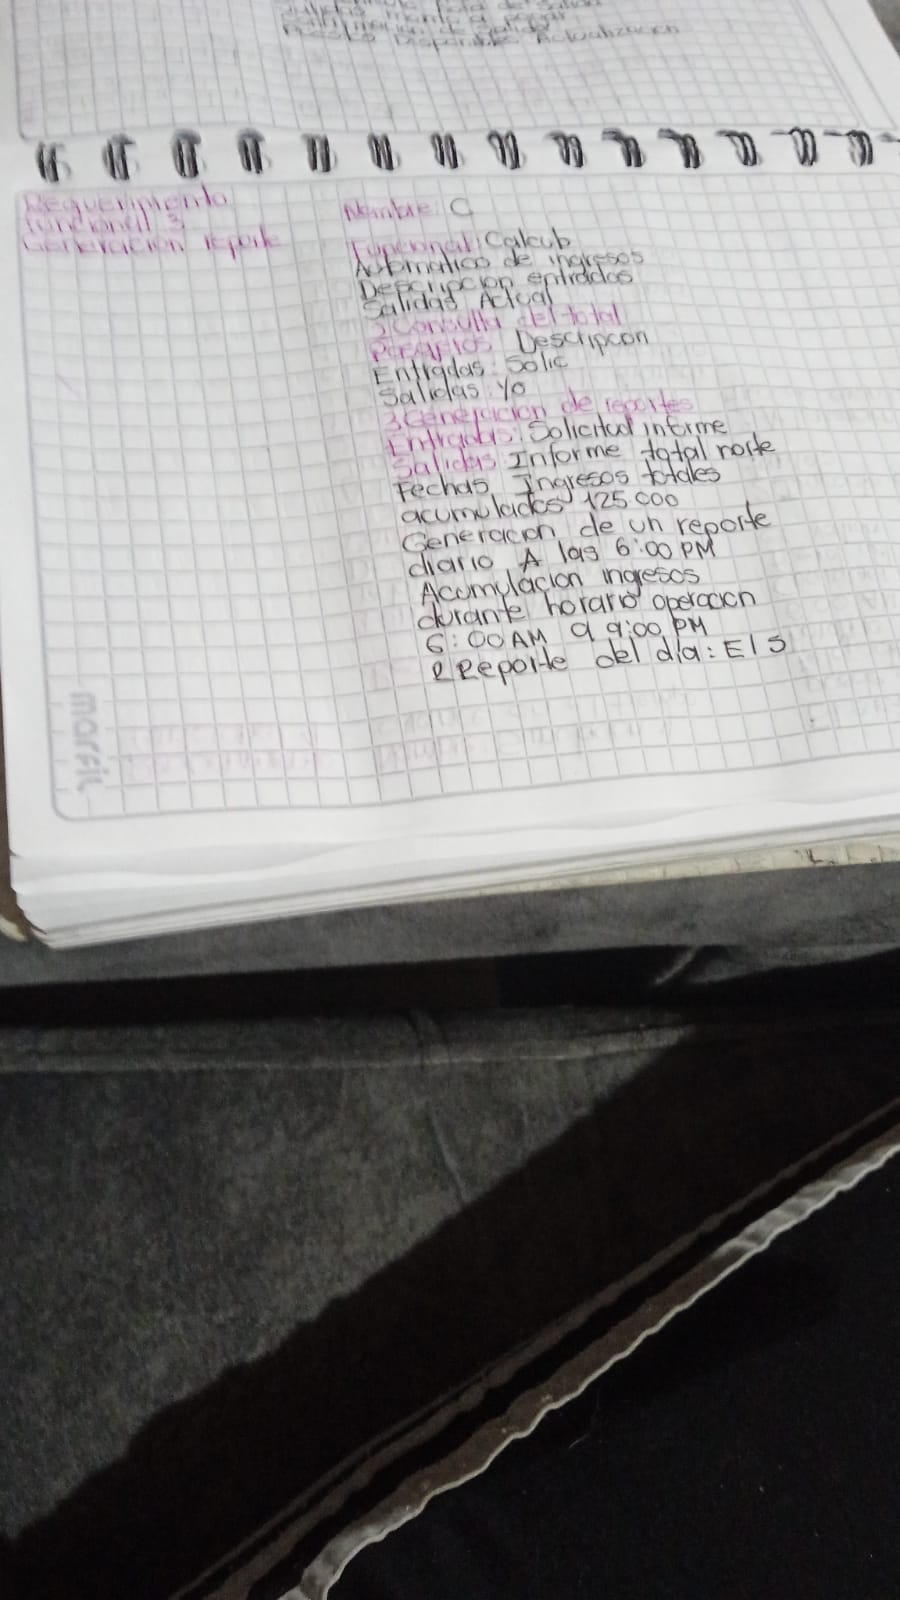 Puestos Disponibles Actualizacion
Requerimiento
funcional 3
Generacion reporte
Nombre: C
Funcional: Calculo
Automatico de ingresos
Descripcion entradas
Salidas Actual
2 Consulta del total
Descripcon
Entradas: Solic
Salidas: Yo
3 Generacion de reportes
Entradas: Solicitud informe
Salidas: Informe total
Fechas Ingresos totales
acumulados 125.000
Generacion de un reporte
diario A las 6:00 PM
Acumulacion ingresos
durante horario operacion
6:00 AM a 9:00 PM
Reporte del dia: E/S
marfil